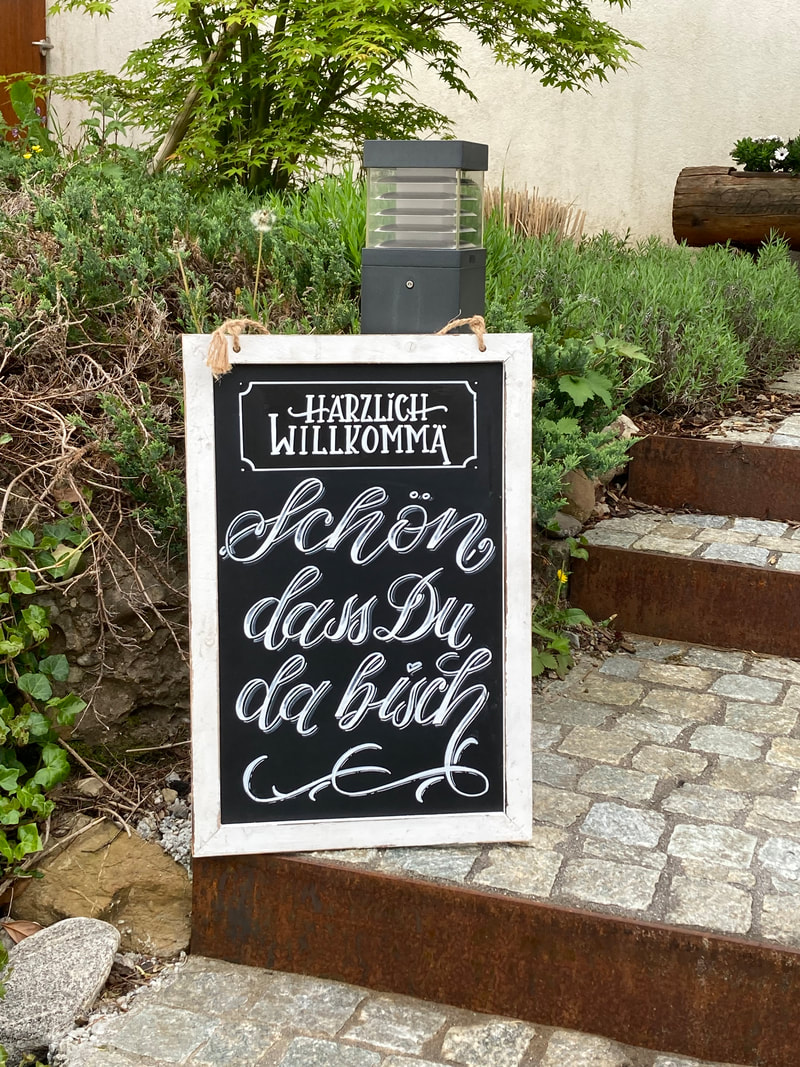 HÄRZLICH
WILLKOMMÄ
Schön
dass Du
da bisch